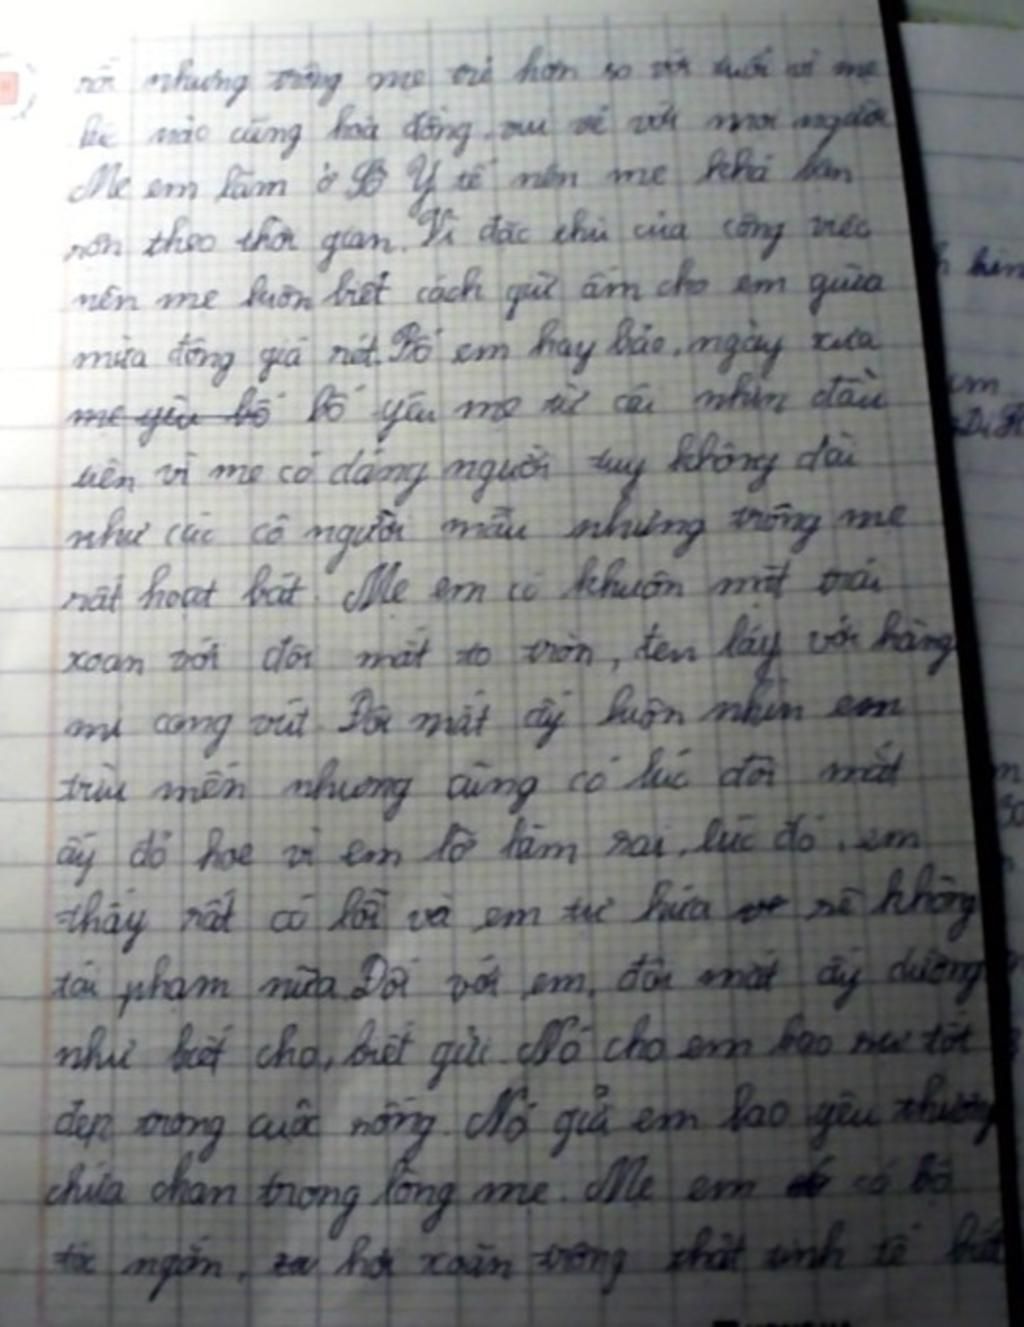 rồi nhưng trông mẹ trẻ hơn so với tuổi vì mẹ
lúc nào cũng hoà đồng, vui vẻ với mọi người
Mẹ em làm ở Sở Y tế nên mẹ khá bận
rộn theo thời gian. Vì đặc thù của công việc
nên mẹ luôn biết cách giữ ấm cho em giữa
mùa đông giá rét. Bố em hay bảo, ngày xưa
mẹ yêu bố bố yêu mẹ từ cái nhìn đầu
tiên vì mẹ có dáng người tuy không dài
như các cô người mẫu nhưng trông mẹ
rất hoạt bát. Mẹ em có khuôn mặt trái
xoan với đôi mắt to tròn, đen láy với hàng
mi cong vút. Đôi mắt ấy luôn nhìn em
trìu mến nhưng cũng có lúc đôi mắt
ấy đỏ hoe vì em lỡ làm sai, lúc đó, em
thấy rất có lỗi và em tự hứa sẽ không
tái phạm nữa. Đối với em, đôi mắt ấy dường
như biết cho, biết gửi. Nó cho em bao sự tốt
đẹp trong cuộc sống. Nó gửi em bao yêu thương
chứa chan trong lòng mẹ. Mẹ em có bộ
tóc ngắn, hơi xoăn trông thật tinh tế